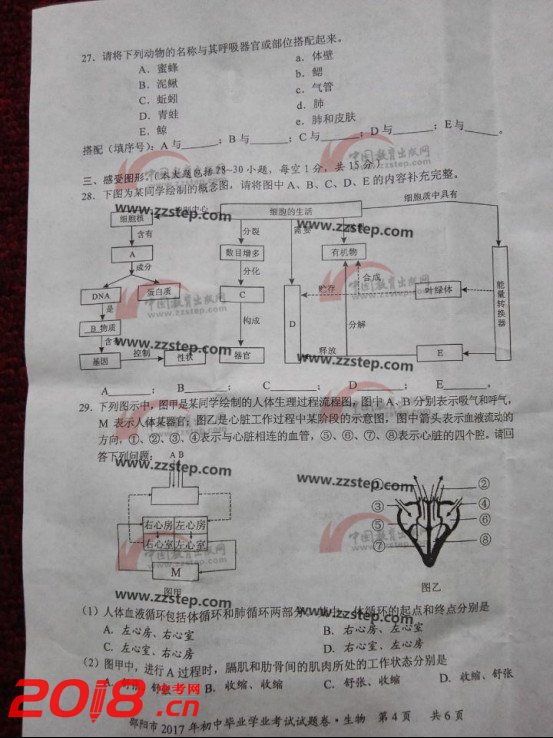 27. 请将下列动物的名称与其呼吸器官或部位搭配起来。
A. 蜜蜂 a. 体壁
B. 泥鳅 b. 鳃
C. 蚯蚓 c. 气管
D. 青蛙 d. 肺
E. 鲸 e. 肺和皮肤
搭配(填序号): A与____; B与____; C与____; D与____; E与____。
三、感受图形。(本大题包括28~30小题, 每空1分, 共15分)
28. 下图为某同学绘制的概念图, 请将图中A、B、C、D、E的内容补充完整。
www.zzstep.com
细胞核 细胞的生活 细胞质中具有
含有 分裂 需要
A 数目增多 有机物
成分 分化 合成
DNA 蛋白质 C 贮存 叶绿体 能量转换器
是 D
B 物质 构成 分解
含有
基因 控制 性状 器官 释放 E
A____; B____; C____; D____; E____。
29. 下列图示中, 图甲是某同学绘制的人体生理过程流程图, 图中A、B分别表示吸气和呼气,
M表示人体某器官; 图乙是心脏工作过程中某阶段的示意图, 图中箭头表示血液流动的
方向, ①、②、③、④表示与心脏相连的血管, ⑤、⑥、⑦、⑧表示心脏的四个腔。请回
答下列问题:
A B
右心房 左心房
右心室 左心室
M
图甲
② ③ ④ ⑤ ⑥ ⑦ ⑧
图乙
www.zzstep.com
中国教育出版网
(1) 人体血液循环包括体循环和肺循环两部分, 体循环的起点和终点分别是
A. 左心房、右心室 B. 右心房、左心室
C. 左心室、右心房 D. 右心室、左心房
(2) 图甲中, 进行A过程时, 膈肌和肋骨间的肌肉所处的工作状态分别是
A. 舒张、舒张 B. 收缩、收缩 C. 舒张、收缩 D. 收缩、舒张
2018.cn
中考网
邵阳市2017年初中毕业学业考试试题卷·生物 第4页 共6页